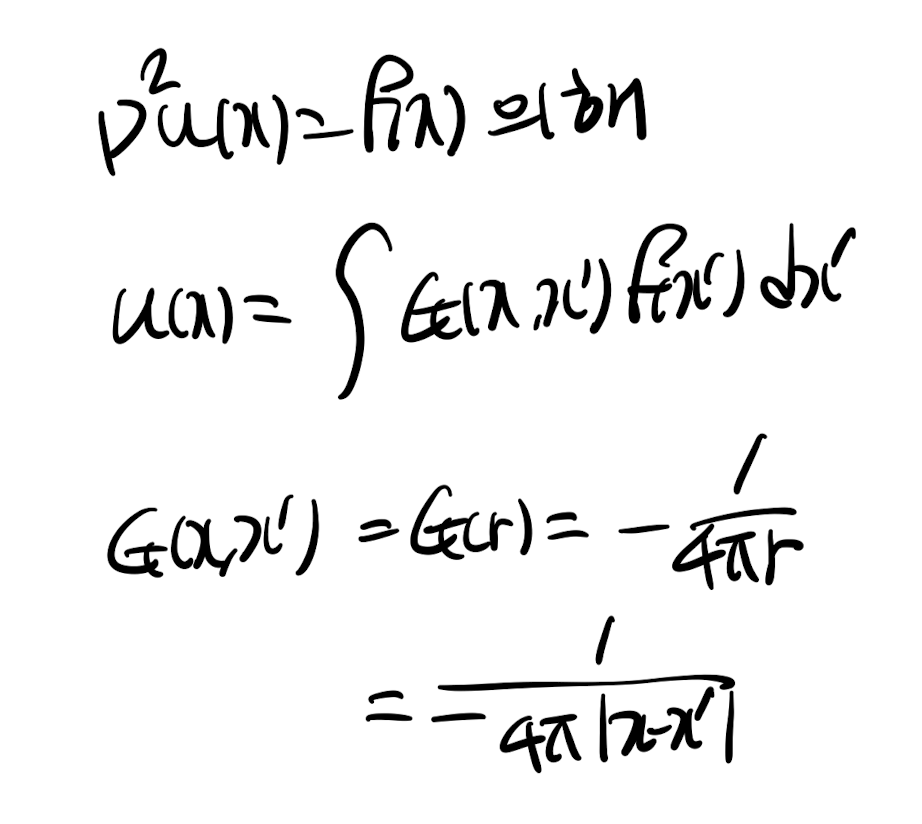 ∇²u(x) = f(x) 의 해
u(x) = ∫ G(x, x') f(x') dx'
G(x, x') = G(r) = - 1/(4πr)
= - 1/(4π|x-x'|)